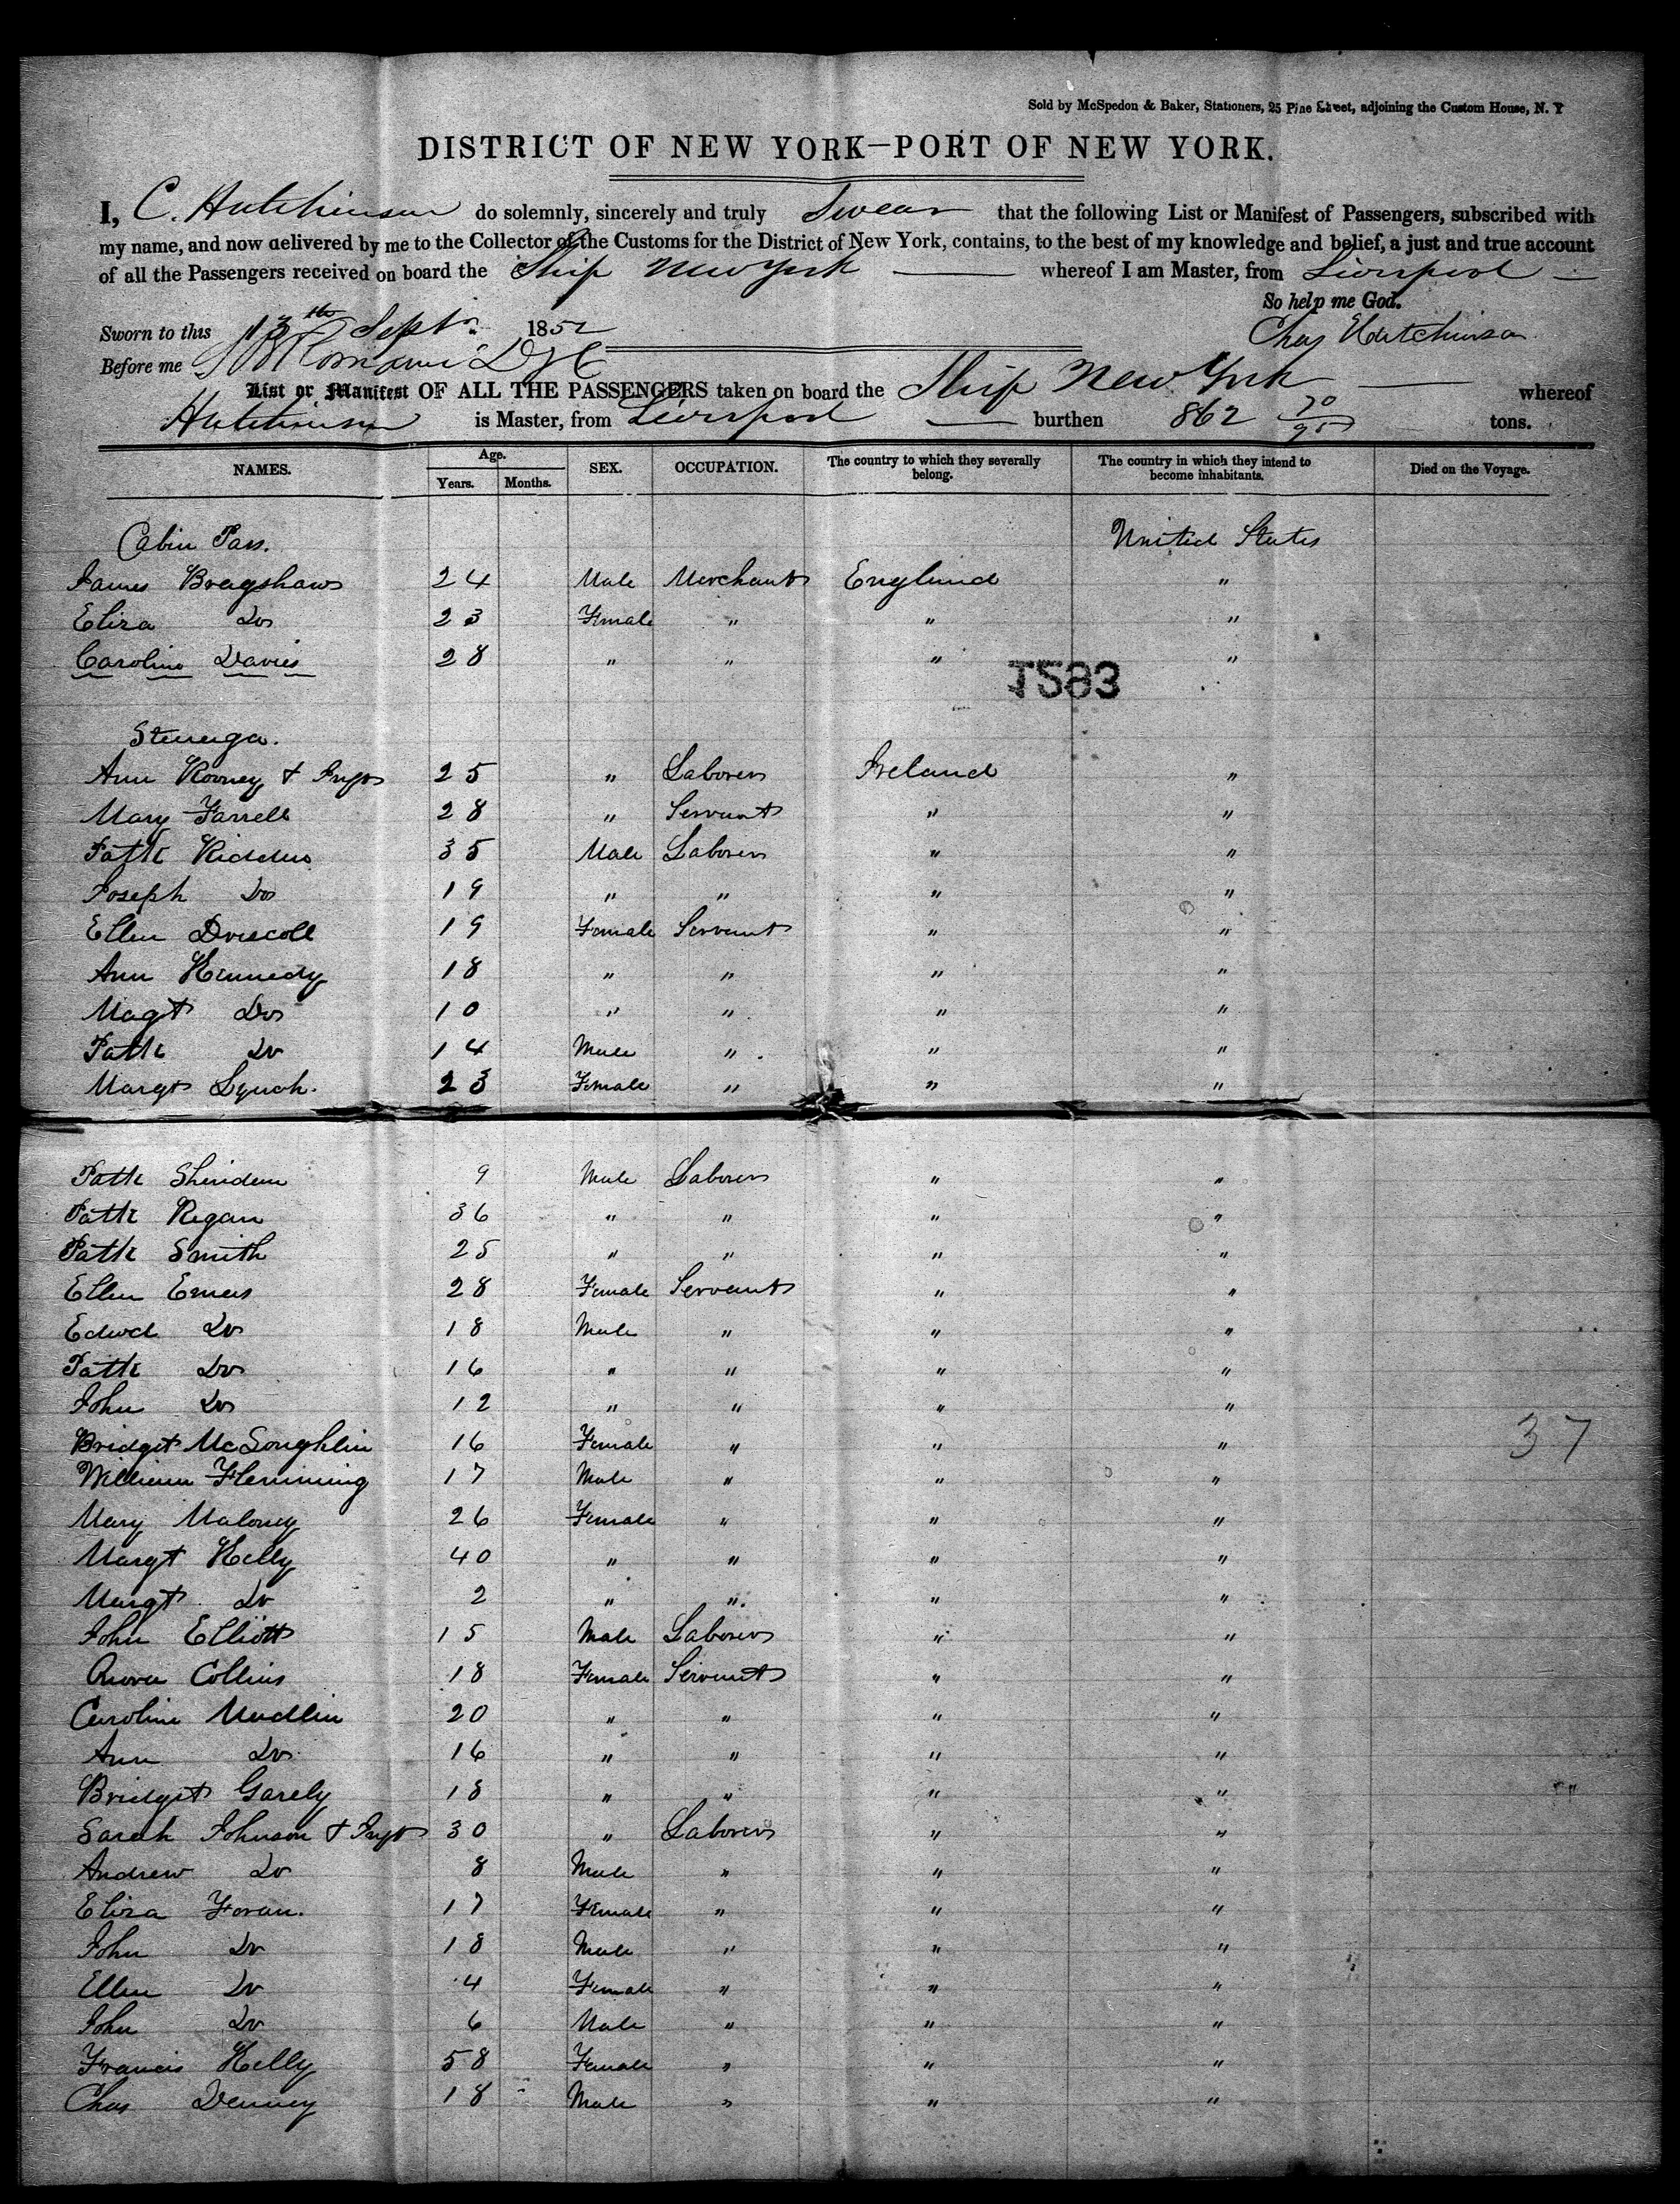 Sold by McSpedon & Baker, Stationers, 25 Pine Street, adjoining the Custom House, N. Y
DISTRICT OF NEW YORK—PORT OF NEW YORK.
I, C. Hutchinson do solemnly, sincerely and truly Swear that the following List or Manifest of Passengers, subscribed with
my name, and now delivered by me to the Collector of the Customs for the District of New York, contains, to the best of my knowledge and belief, a just and true account
of all the Passengers received on board the Ship New York whereof I am Master, from Liverpool
So help me God.
Sworn to this 13th Sept. 1852 Chas Hutchinson
Before me
List or Manifest OF ALL THE PASSENGERS taken on board the Ship New York whereof
Hutchinson is Master, from Liverpool burthen 862 70/95 tons.
NAMES. Age. Years. Months. SEX. OCCUPATION. The country to which they severally belong. The country in which they intend to become inhabitants. Died on the Voyage.
Cabin Pass. United States
James Bragshaw 24 Male Merchant England "
Eliza Do 23 Female " " "
Caroline Davies 28 " " " "
1593
Steerage.
Ann Rooney & Inft 25 " Laborer Ireland "
Mary Farrell 28 " Servant " "
Patk 35 Male Laborer " "
Joseph Do 19 " " " "
Ellen Driscoll 19 Female Servant " "
Ann Kennedy 18 " " " "
Magt Do 10 " " " "
Patk Do 14 Male " " "
Margt Lynch. 23 Female " " "
Patk Sheridan 9 Male Laborer " "
Patk Regan 36 " " " "
Patk Smith 25 " " " "
Ellen Emers 28 Female Servant " "
Edwd Do 18 Male " " "
Patk Do 16 " " " "
John Do 12 " " " "
Bridget McLoughlin 16 Female " " "
37
William Flemming 17 Male " " "
Mary Maloney 26 Female " " "
Margt Kelly 40 " " " "
Margt Do 2 " " " "
John Elliott 15 Male Laborer " "
Collins 18 Female Servant " "
Caroline Madlin 20 " " " "
Ann Do 16 " " " "
Bridget Garely 18 " " " "
Sarah Johnson & Inft 30 " Laborer " "
Andrew Do 8 Male " " "
Eliza Foran. 17 Female " " "
John Do 18 Male " " "
Ellen Do 4 Female " " "
John Do 6 Male " " "
Francis Kelly 58 Female " " "
Chas Denney 18 Male " " "